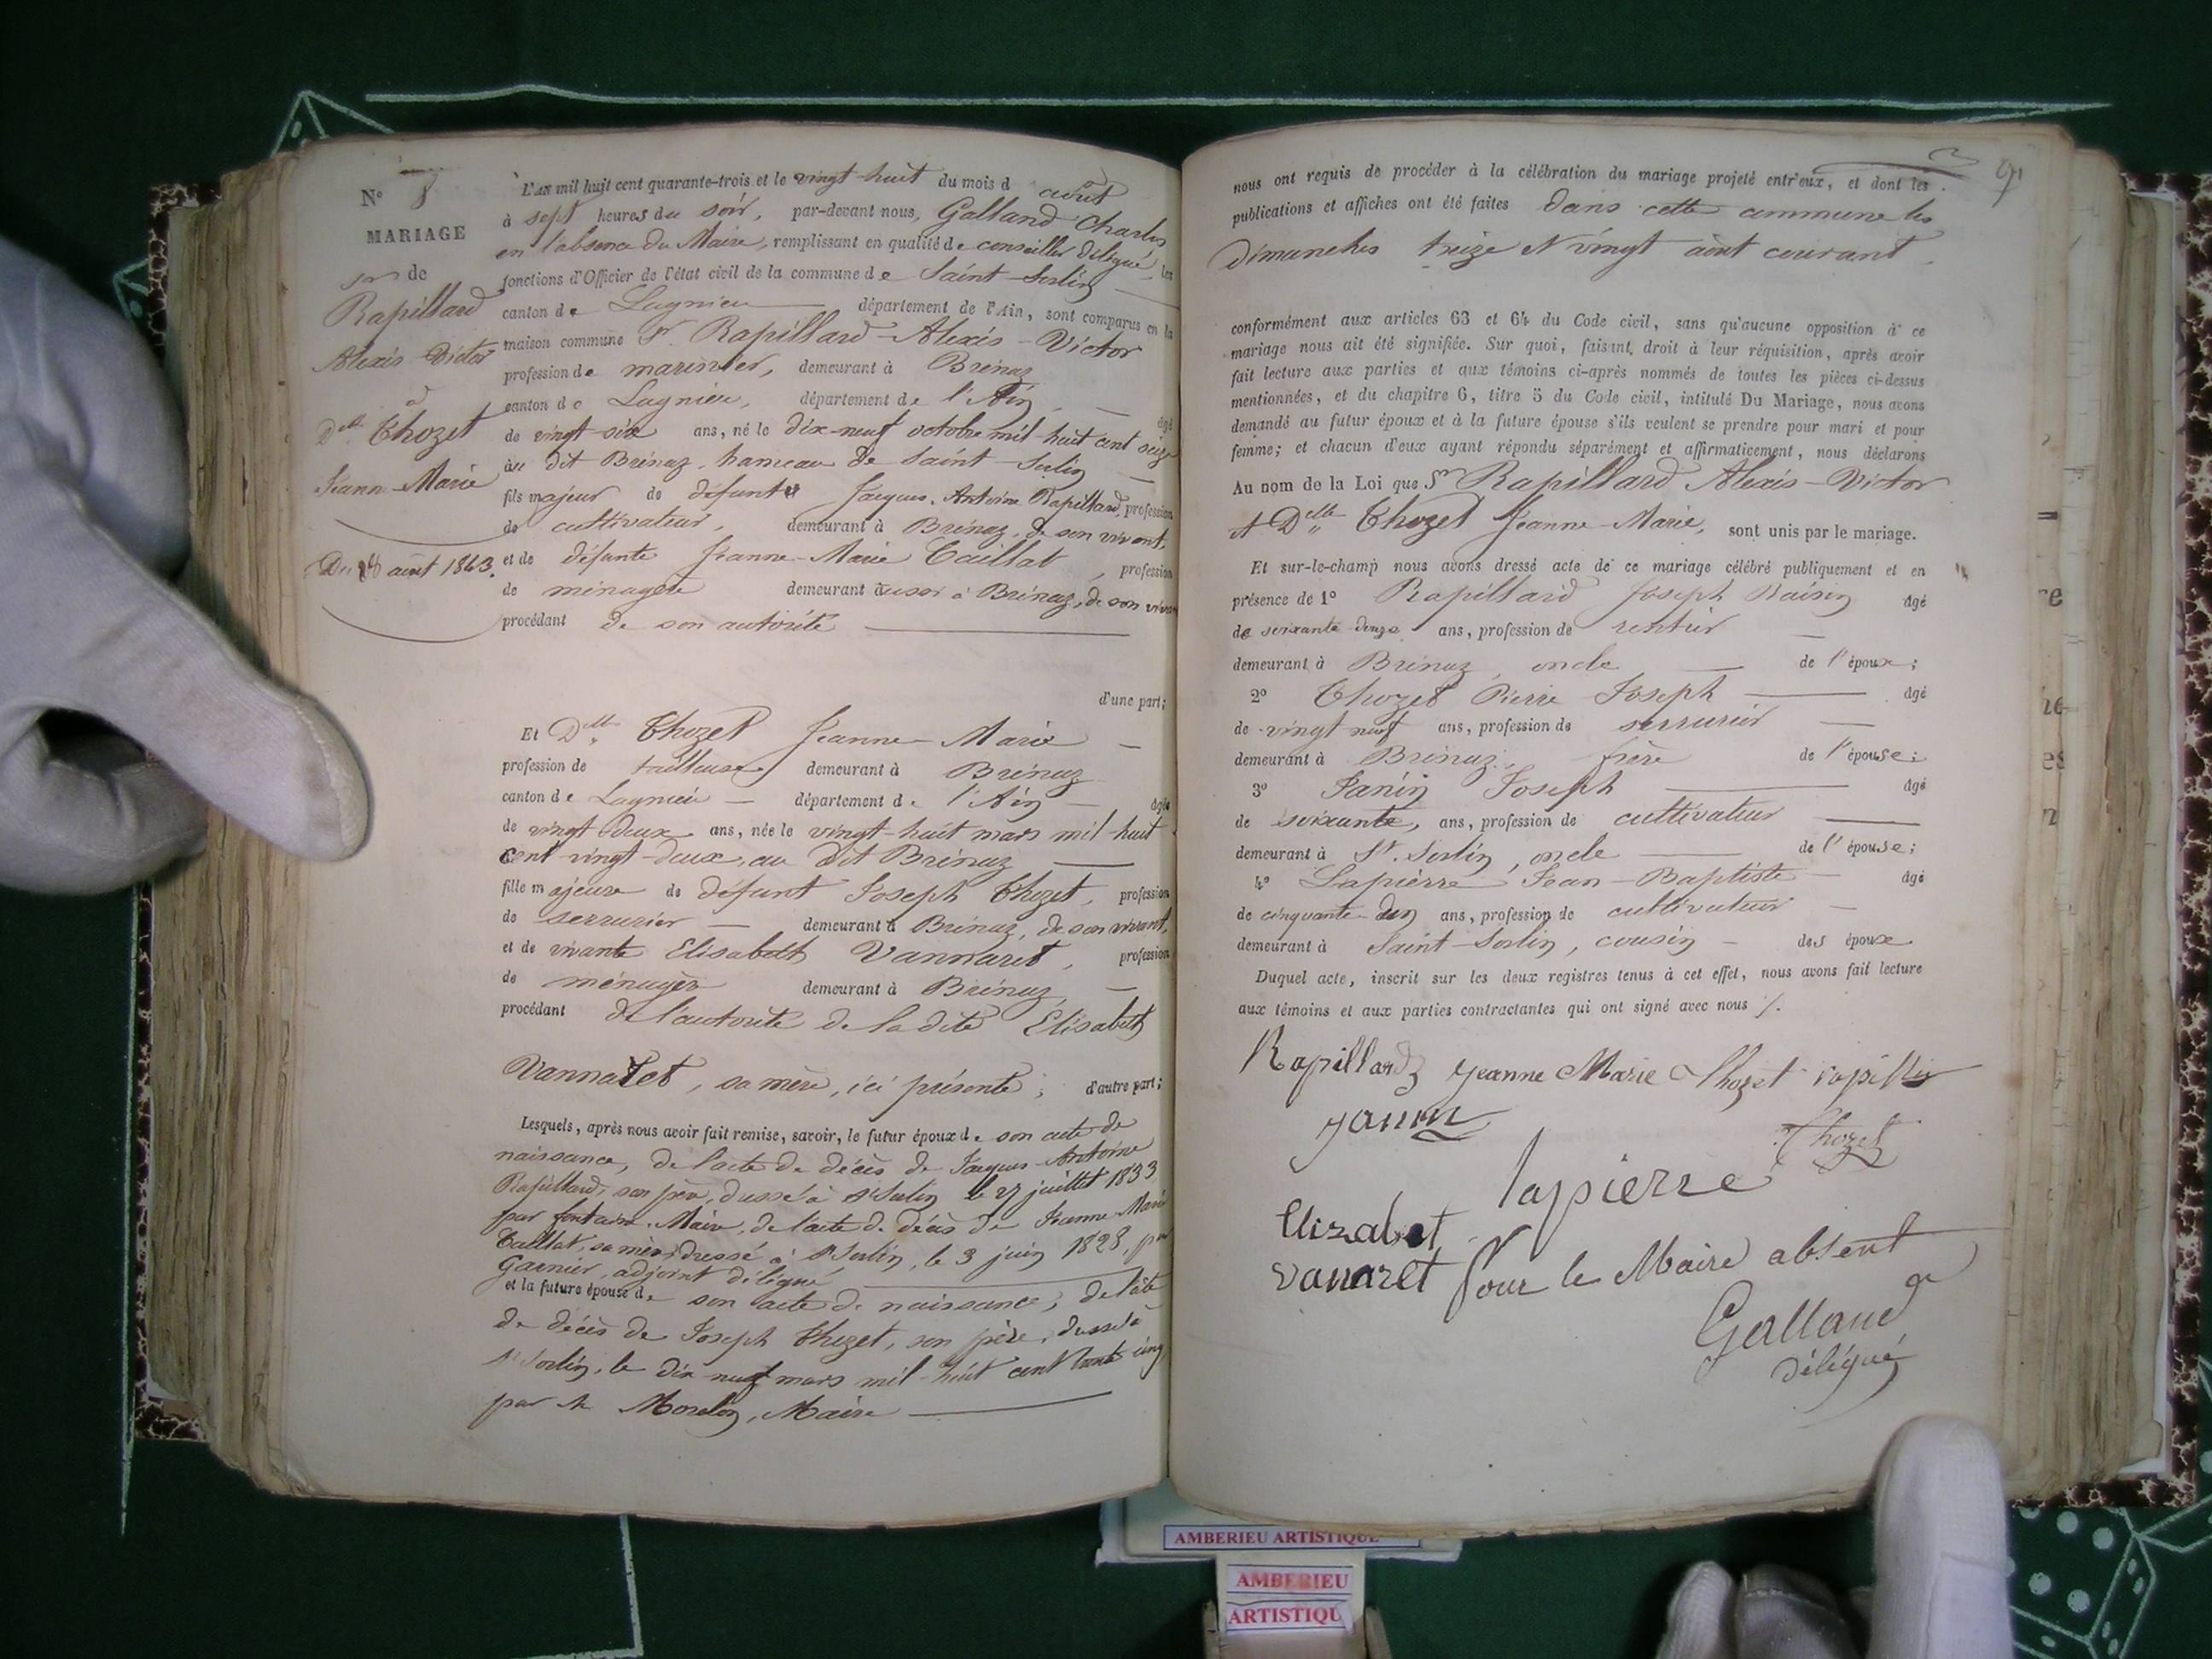 N° 8
MARIAGE
de
Rapillard
Alexis Victor
à
Delle Thozet
Jeanne Marie
Du 28 août 1843.
L'AN mil huit cent quarante-trois et le vingt-huit du mois d août
à sept heures du soir, par-devant nous, Galland Charles
en l'absence du Maire, remplissant en qualité de conseiller délégué, les
fonctions d'Officier de l'état civil de la commune de Saint-Sorlin
canton de Lagnieu département de l'Ain, sont comparus en la
maison commune Sr Rapillard Alexis-Victor
profession de marinier, demeurant à Brénaz
canton de Lagnieu, département de l'Ain, âgé
de vingt-six ans, né le dix-neuf octobre mil-huit cent seize
au dit Brénaz, hameau de Saint-Sorlin
fils majeur de défunt Jacques-Antoine Rapillard, profession
de cultivateur, demeurant à Brénaz, de son vivant,
et de défunte Jeanne-Marie Caillat, profession
de ménagère demeurant aussi à Brénaz, de son vivant
procédant de son autorité
d'une part;
Et Delle Thozet Jeanne-Marie
profession de tailleuse demeurant à Brénaz
canton de Lagnieu département de l'Ain âgée
de vingt-deux ans, née le vingt-huit mars mil-huit
cent vingt-deux, au dit Brénaz
fille majeure de défunt Joseph Thozet, profession
de serrurier demeurant à Brénaz, de son vivant,
et de vivante Elisabeth Vannaret, profession
de ménagère demeurant à Brénaz,
procédant de l'autorité de la dite Elisabeth
Vannaret, sa mère, ici présente; d'autre part;
Lesquels, après nous avoir fait remise, savoir, le futur époux de son acte de
naissance, de l'acte de décès de Jacques-Antoine
Rapillard, son père, dressé à St Sorlin le 27 juillet 1833
par fontaine, Maire, de l'acte de décès de Jeanne-Marie
Caillat, sa mère, dressé à St Sorlin, le 3 juin 1828, par
Garnier, adjoint délégué
et la future épouse de son acte de naissance, de l'acte
de décès de Joseph Thozet, son père, dressé à
St Sorlin, le dix neuf mars mil-huit cent trente cinq
par Mr Maire
9
nous ont requis de procéder à la célébration du mariage projeté entr'eux, et dont les
publications et affiches ont été faites dans cette commune les
dimanches treize et vingt août courant
conformément aux articles 63 et 64 du Code civil, sans qu'aucune opposition à ce
mariage nous ait été signifiée. Sur quoi, faisant droit à leur réquisition, après avoir
fait lecture aux parties et aux témoins ci-après nommés de toutes les pièces ci-dessus
mentionnées, et du chapitre 6, titre 5 du Code civil, intitulé Du Mariage, nous avons
demandé au futur époux et à la future épouse s'ils veulent se prendre pour mari et pour
femme; et chacun d'eux ayant répondu séparément et affirmativement, nous déclarons
Au nom de la Loi que Sr Rapillard Alexis-Victor
et Delle Thozet Jeanne-Marie, sont unis par le mariage.
Et sur-le-champ nous avons dressé acte de ce mariage célébré publiquement et en
présence de 1° Rapillard Joseph âgé
de soixante-douze ans, profession de rentier
demeurant à Brénaz, oncle de l'époux;
2° Thozet Pierre Joseph âgé
de vingt neuf ans, profession de serrurier
demeurant à Brénaz, frère de l'épouse;
3° Janin Joseph âgé
de soixante, ans, profession de cultivateur
demeurant à St Sorlin, oncle de l'épouse;
4° Lapierre, Jean-Baptiste âgé
de cinquante ans, profession de cultivateur
demeurant à Saint-Sorlin, cousin des époux
Duquel acte, inscrit sur les deux registres tenus à cet effet, nous avons fait lecture
aux témoins et aux parties contractantes qui ont signé avec nous /.
Rapillard Jeanne Marie Thozet
janin
Thozet
lapierre
Elizabet
vanaret Pour le Maire absent
Galland
délégué
AMBERIEU ARTISTIQUE
AMBERIEU
ARTISTIQU